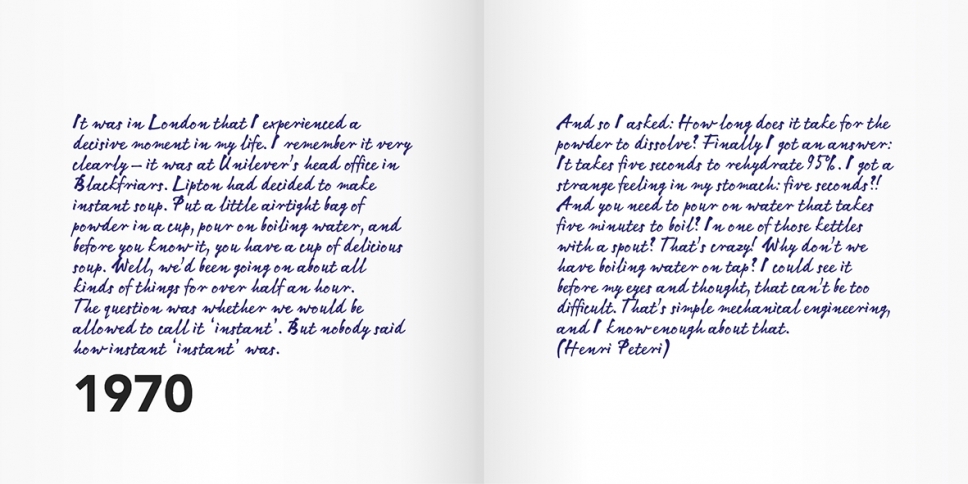 It was in London that I experienced a
decisive moment in my life. I remember it very
clearly – it was at Unilever's head office in
Blackfriars. Lipton had decided to make
instant soup. Put a little airtight bag of
powder in a cup, pour on boiling water, and
before you know it, you have a cup of delicious
soup. Well, we'd been going on about all
kinds of things for over half an hour.
The question was whether we would be
allowed to call it 'instant'. But nobody said
how instant 'instant' was.
1970
And so I asked: How long does it take for the
powder to dissolve? Finally I got an answer:
It takes five seconds to rehydrate 95%. I got a
strange feeling in my stomach: five seconds?!
And you need to pour on water that takes
five minutes to boil? In one of those kettles
with a spout? That's crazy! Why don't we
have boiling water on tap? I could see it
before my eyes and thought, that can't be too
difficult. That's simple mechanical engineering,
and I know enough about that.
(Henri Peteri)